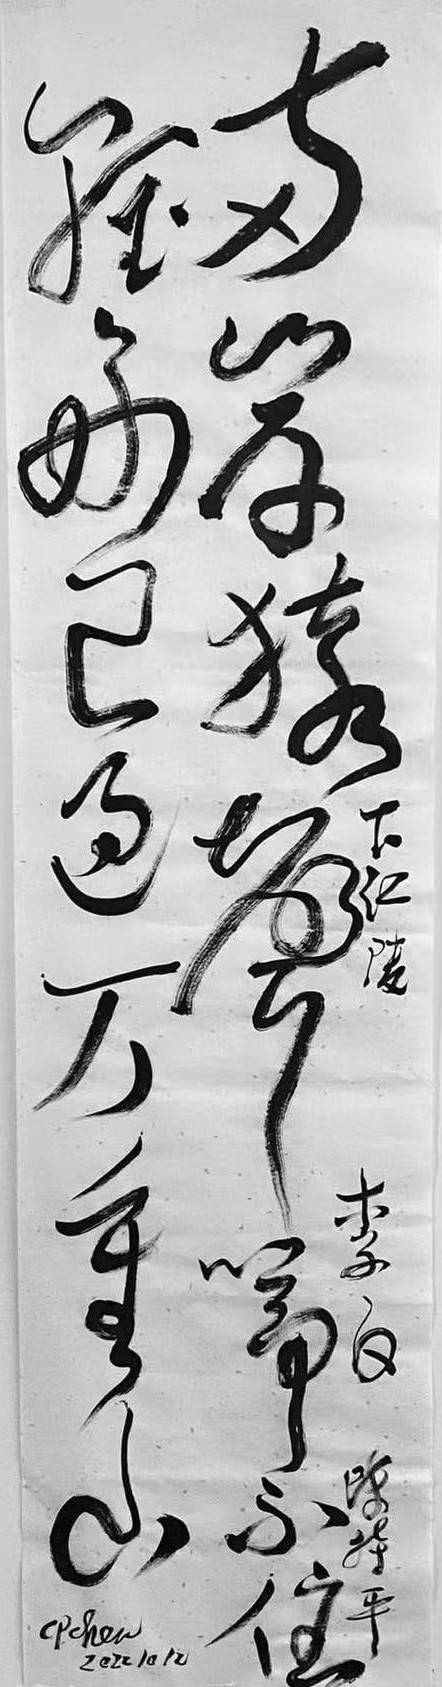 兩岸猿聲啼不住
輕舟已過万重山
下江陵
李白
陳 平
CPchen
2022/10/12